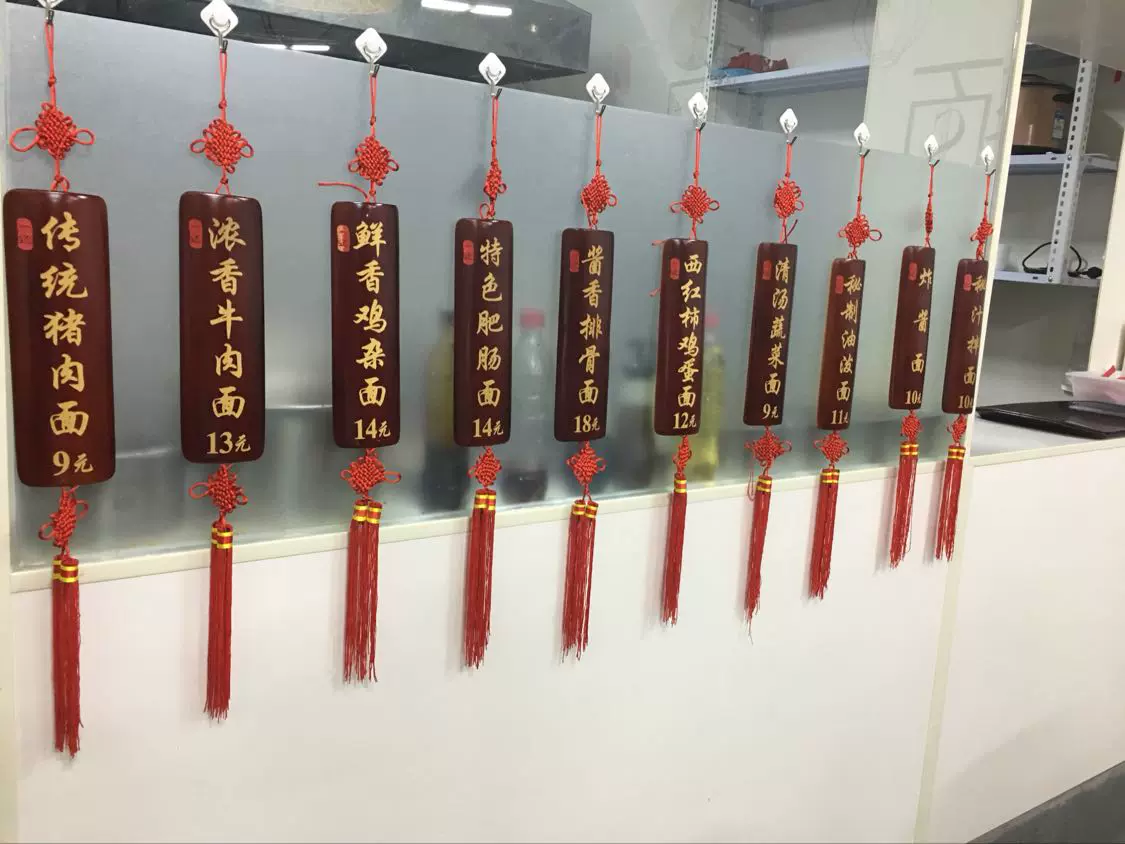 传统猪肉面
9元
浓香牛肉面
13元
鲜香鸡杂面
14元
特色肥肠面
14元
酱香排骨面
18元
西红柿鸡蛋面
12元
清汤蔬菜面
9元
秘制油泼面
11元
炸酱面
10元
秘汁拌面
10元